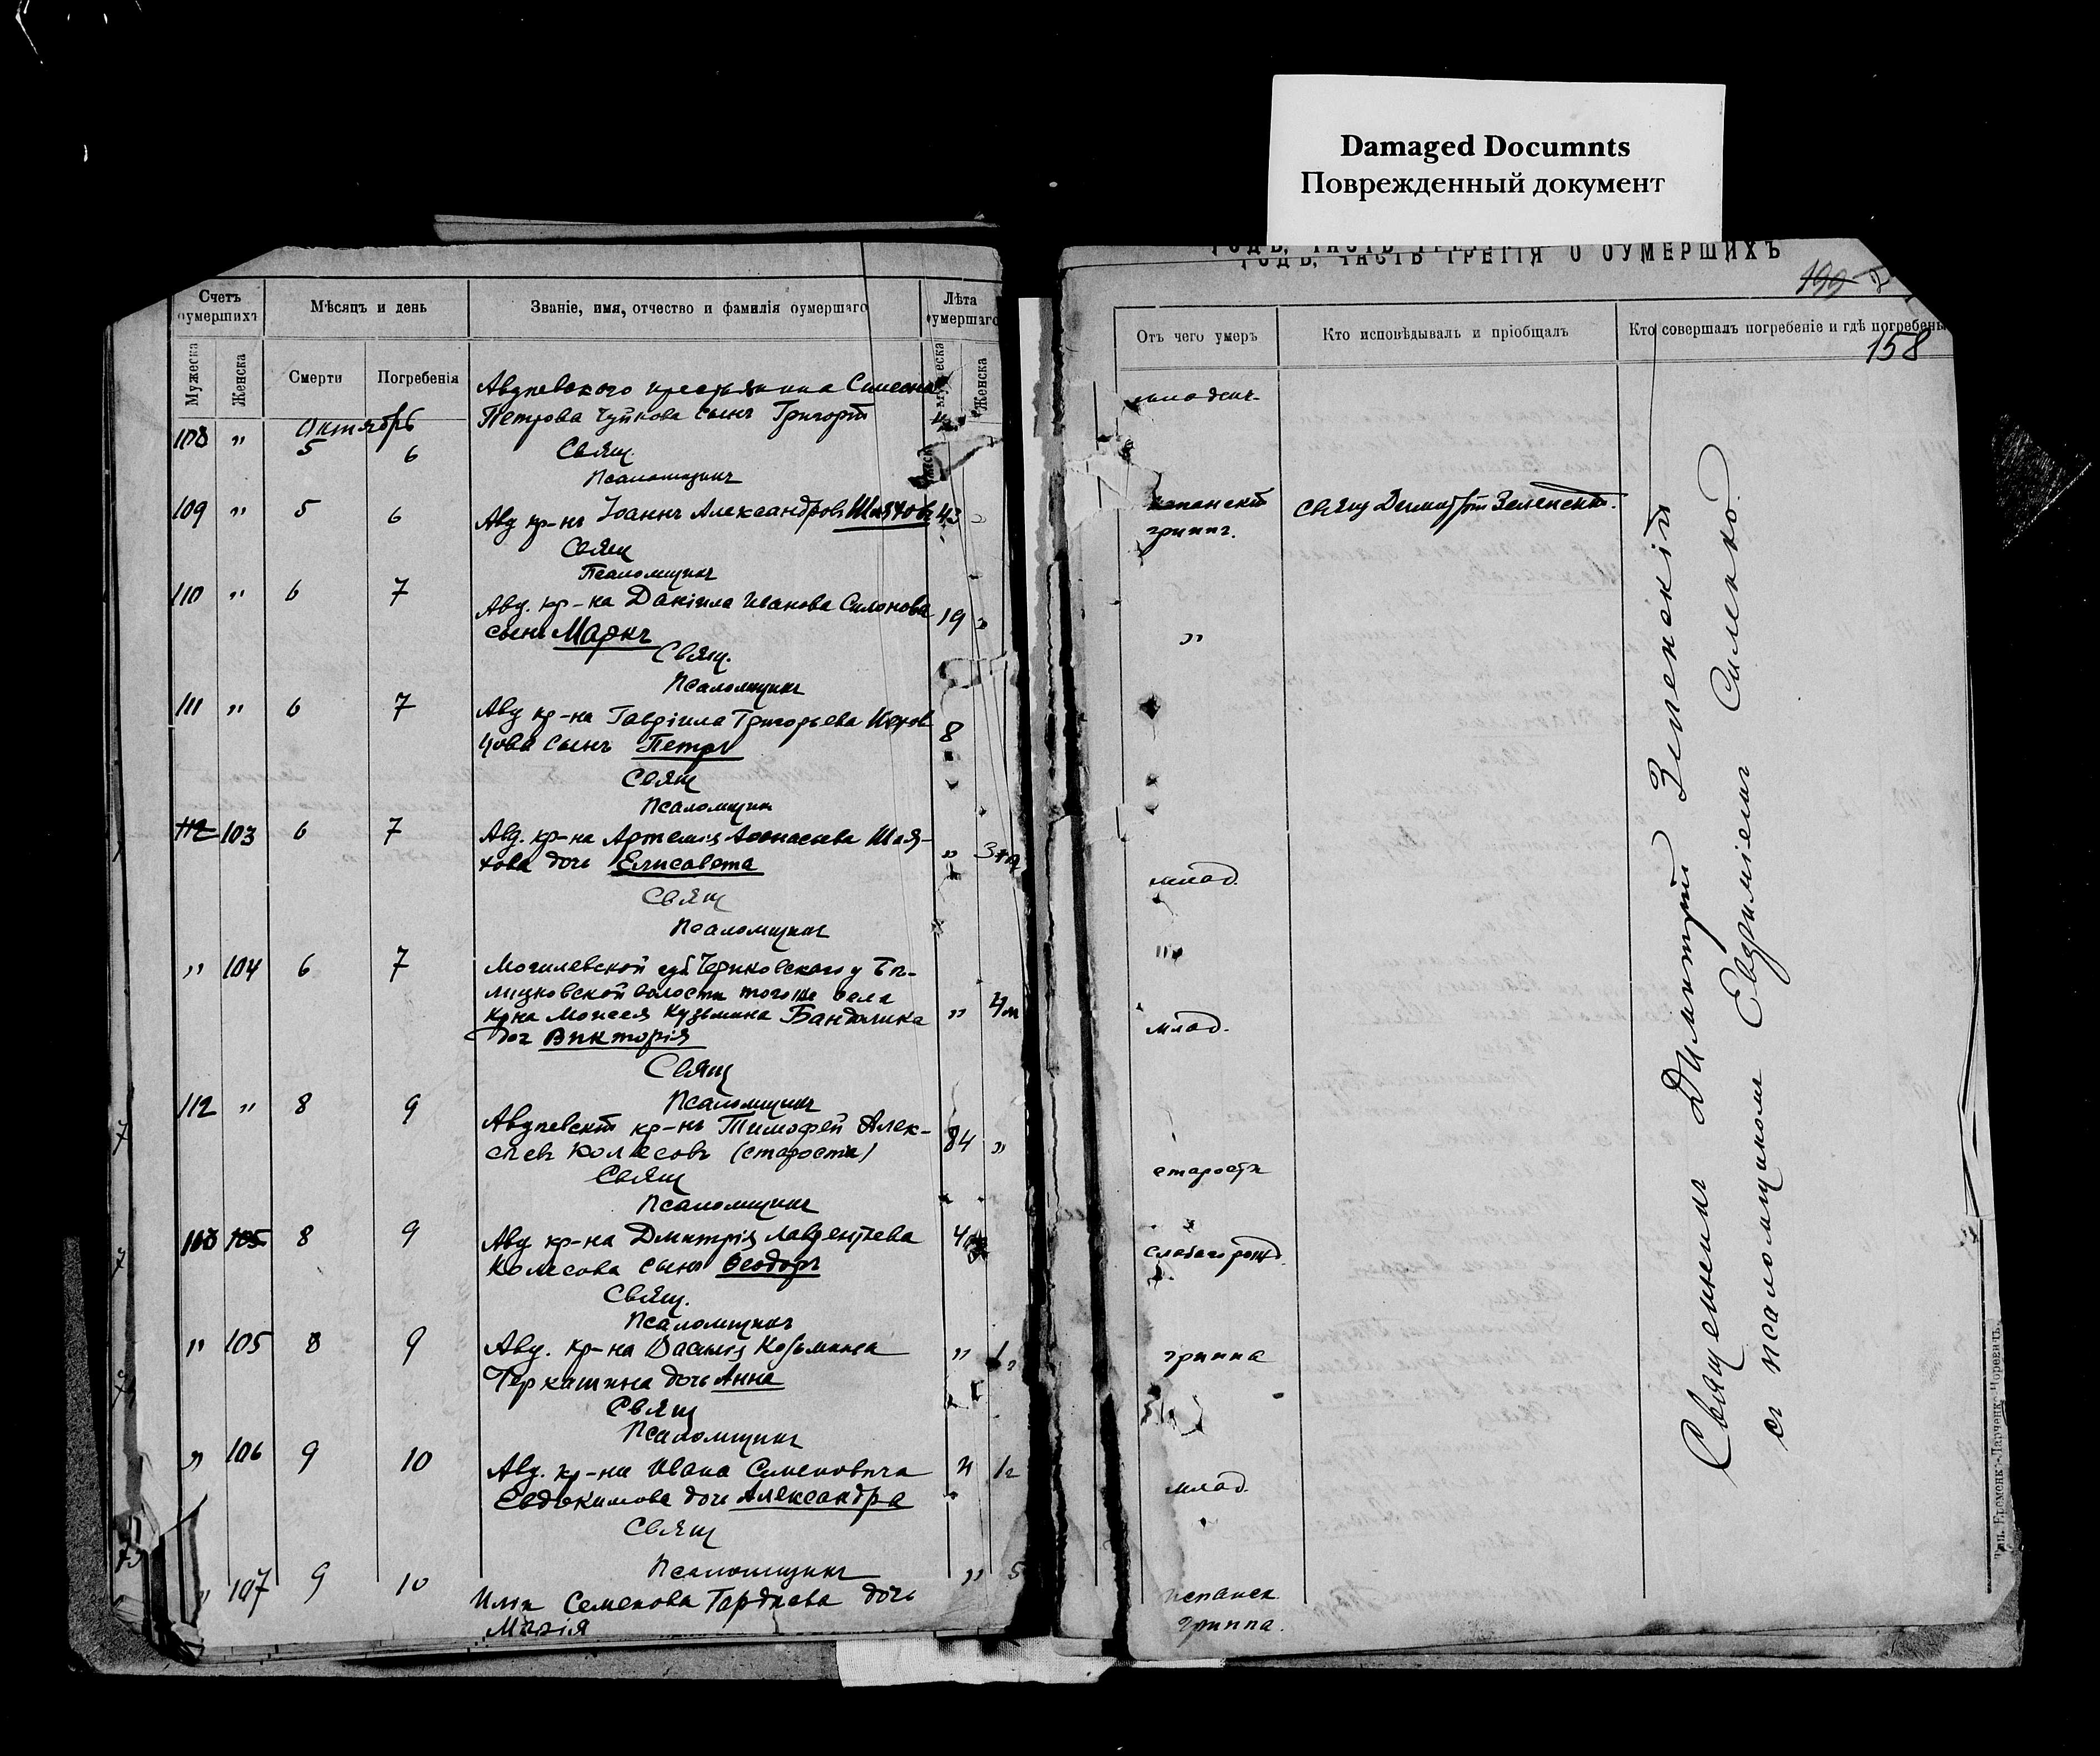 Damaged Documnts
Поврежденный документ
ГОДЪ, ЧАСТЬ ТРЕТІЯ О ОУМЕРШИХЪ
199
158
Счетъ оумершихъ
Мѣсяцъ и день
Званіе, имя, отчество и фамилія оумершаго
Лѣта оумершаго
Мужеска
Женска
Смерти
Погребенія
Мужеска
Женска
Отъ чего умеръ
Кто исповѣдывалъ и пріобщалъ
Кто совершалъ погребеніе и гдѣ погребены
Октябрь
108 " 5 6
Петрова Чуйкова сынъ Григорій
Свящ.
Псаломщикъ
109 " 5 6 Авд кр-нъ Іоаннъ Александровъ Шляховъ 43
испанскій
гриппъ.
Свящ Димитрій Зеленскій.
Свящ
Псаломщикъ
110 " 6 7 Авд. кр-на Даніила Иванова 19 "
сынъ Маркъ
"
Свящ.
Псаломщикъ
111 " 6 7 Авд кр-на Гавріила Григорьева
цова сынъ Петръ 8
Свящ
Псаломщик
112 103 6 7 Авд. кр-на Артемія Аѳонасьева Шля-
хова дочь Елисавета "
млад.
Свящ
Псаломщикъ
" 104 6 7 Могилевской губ Чериковскаго у
волости того же села
кр-на Моисея Кузьмина Бандалика " 4 м
доч Викторія
млад.
Свящ
Псаломщикъ
112 " 8 9 Авдѣевскій кр-нъ Тимофей Алек-
сѣевъ Колесовъ (старости) 84 "
старости
Свящ
Псаломщикъ
113 105 8 9 Авд кр-на Дмитрія Лаврентьева
Колесова сынъ Ѳеодоръ 4
слабаго рожд.
Свящ.
Псаломщикъ
" 105 8 9 Авд. кр-на Василія Козьмина "
Теркашина дочь Анна
гриппа
Свящ
Псаломщикъ
" 106 9 10 Авд. кр-на Ивана Семеновича " 1 г
Евдокимова дочь Александра
млад.
Свящ
Псаломщикъ
" 107 9 10 Семенова Гардѣева дочь " 5
Марія
испанск.
гриппа.
Священникъ Димитрій Зеленскій
съ псаломщикомъ Евфиміемъ Силенко.